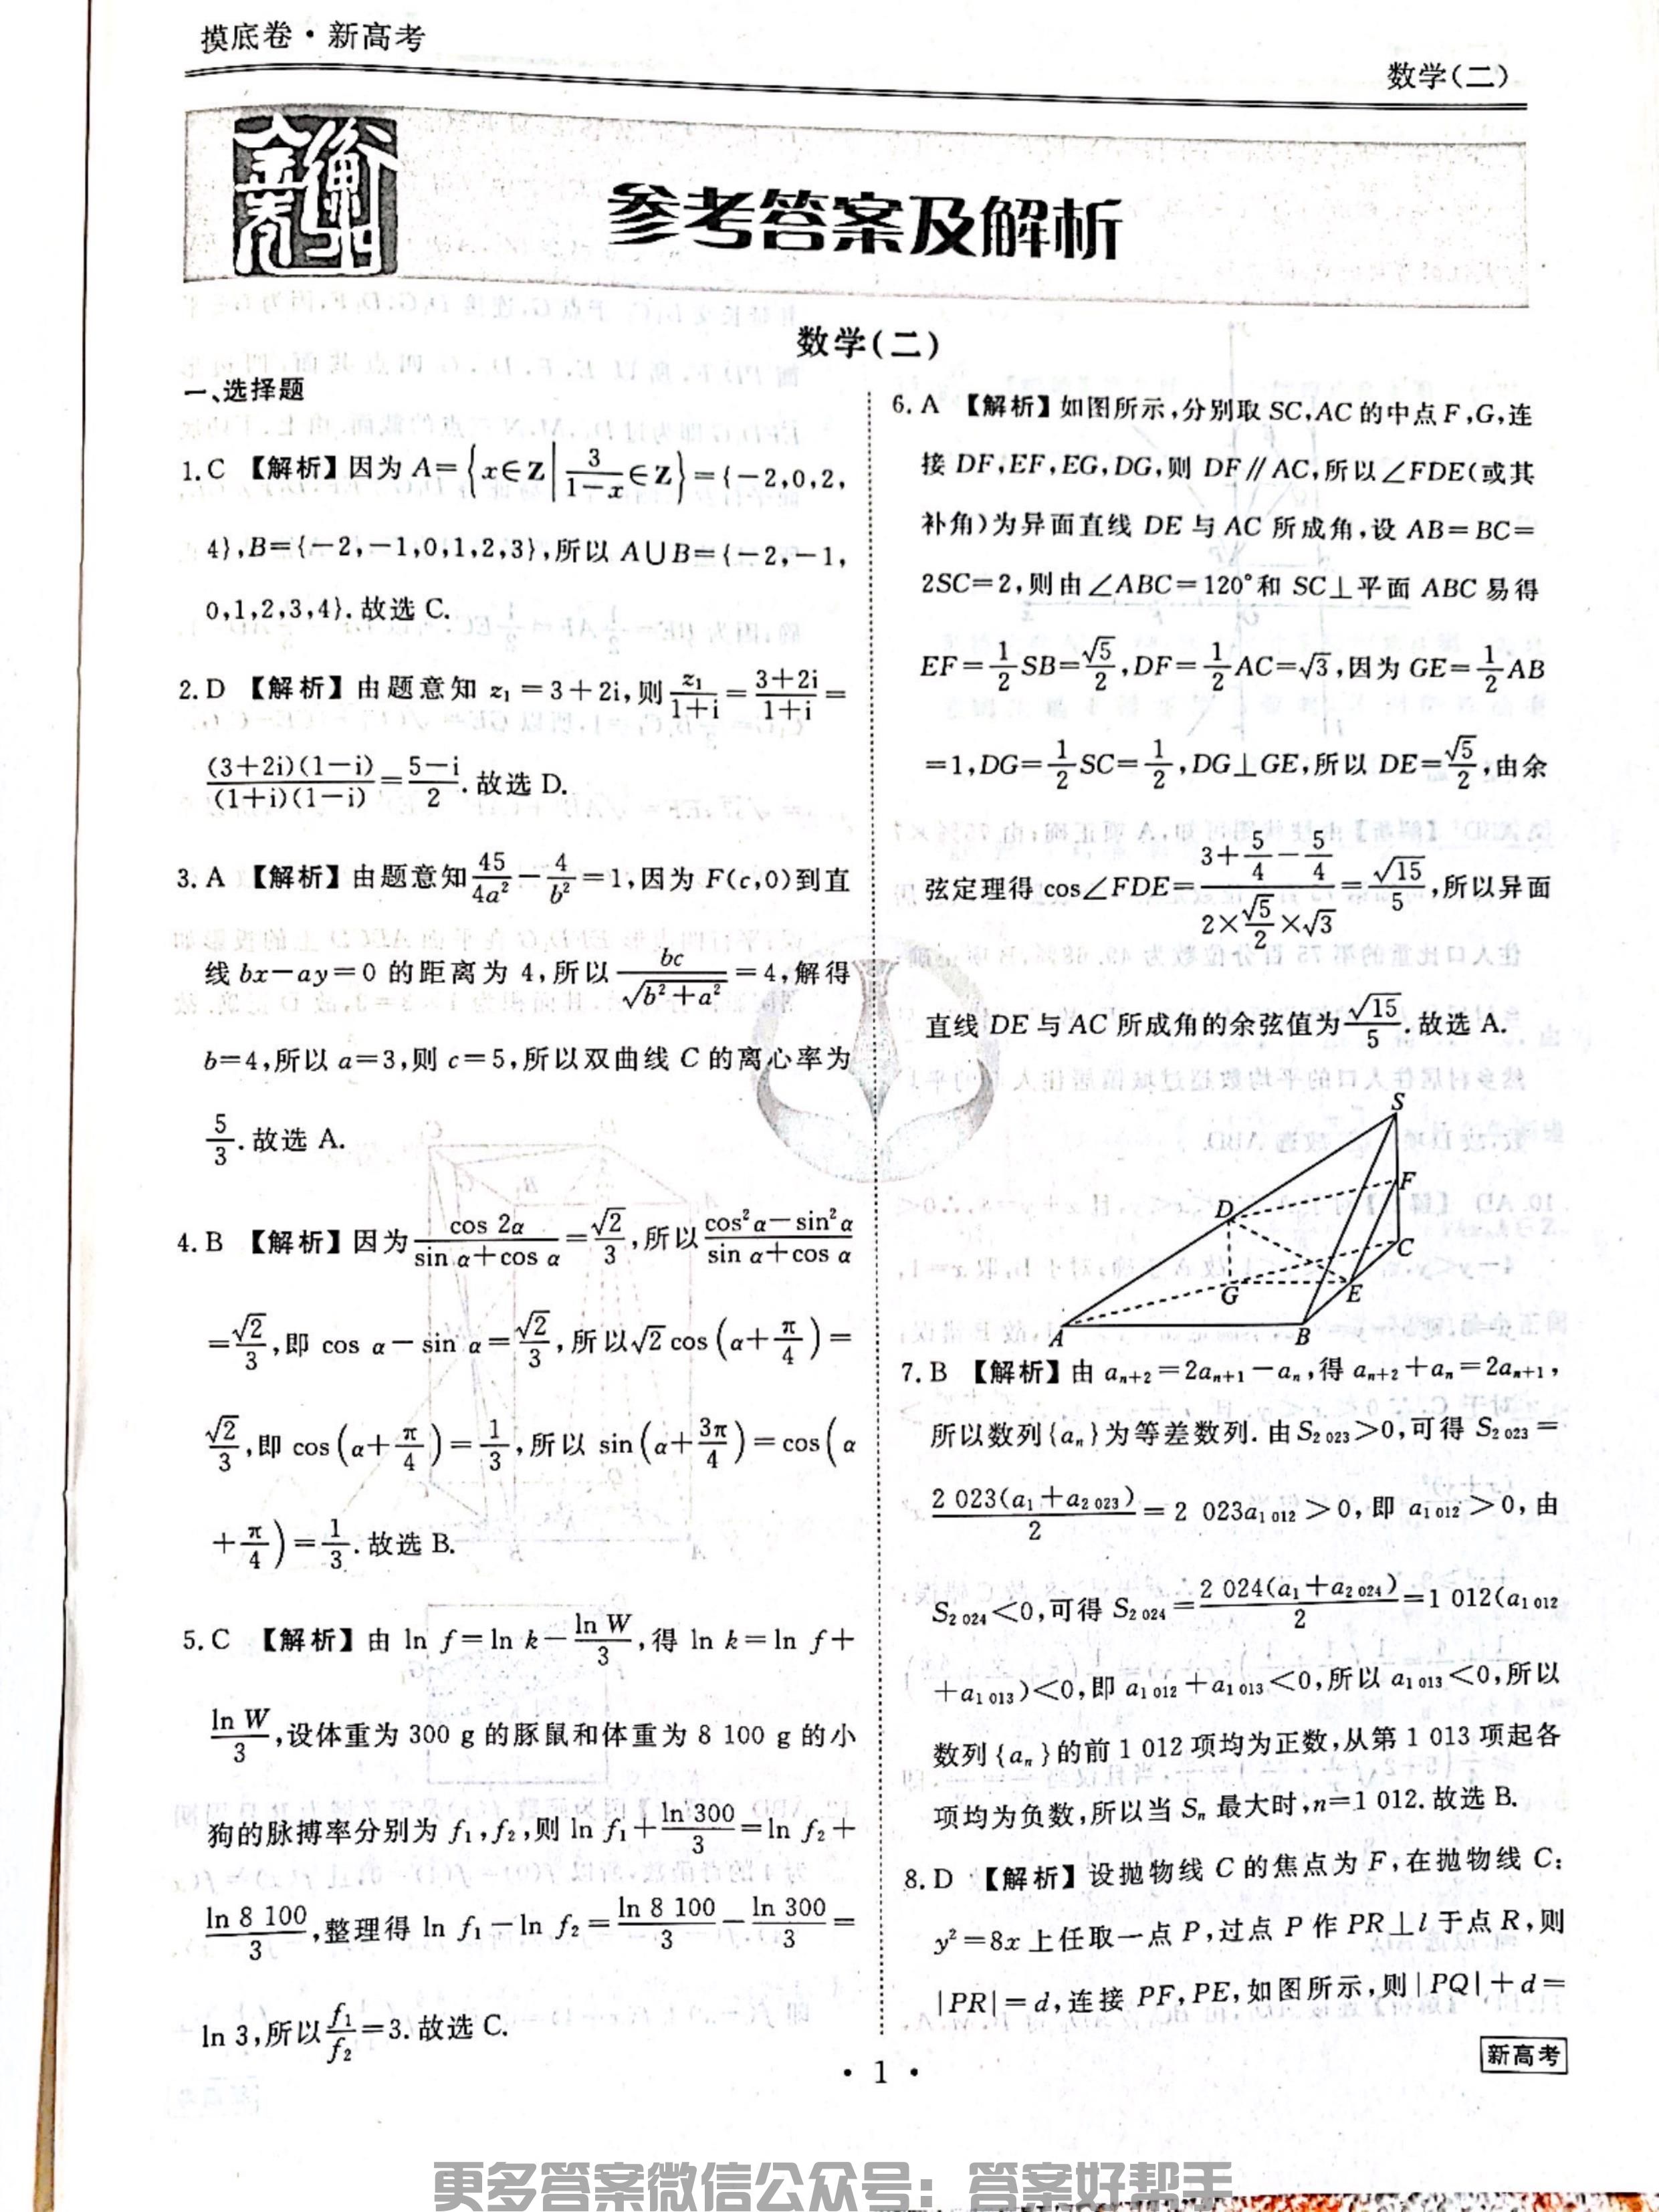 摸底卷·新高考
数学(二)
金衡卷
参考答案及解析
数学(二)
一、选择题
1.C 【解析】因为 A={x∈Z|3/(1-x)∈Z}={-2,0,2,
4},B={-2,-1,0,1,2,3},所以 A∪B={-2,-1,
0,1,2,3,4}.故选 C.
2.D 【解析】由题意知 z₁=3+2i,则 z₁/(1+i)=(3+2i)/(1+i)=
(3+2i)(1-i)/(1+i)(1-i)=(5-i)/2.故选 D.
3.A 【解析】由题意知 45/4a²-4/b²=1,因为 F(c,0)到直
线 bx-ay=0 的距离为 4,所以 bc/√(b²+a²)=4,解得
b=4,所以 a=3,则 c=5,所以双曲线 C 的离心率为
5/3.故选 A.
4.B 【解析】因为 cos 2α/(sin α+cos α)=√2/3,所以 (cos²α-sin²α)/(sin α+cos α)
=√2/3,即 cos α-sin α=√2/3,所以√2 cos(α+π/4)=
√2/3,即 cos(α+π/4)=1/3,所以 sin(α+3π/4)=cos(α
+π/4)=1/3.故选 B.
5.C 【解析】由 ln f=ln k-ln W/3,得 ln k=ln f+
ln W/3,设体重为 300 g 的豚鼠和体重为 8 100 g 的小
狗的脉搏率分别为 f₁,f₂,则 ln f₁+ln 300/3=ln f₂+
ln 8 100/3,整理得 ln f₁-ln f₂=ln 8 100/3-ln 300/3=
ln 3,所以 f₁/f₂=3.故选 C.
6.A 【解析】如图所示,分别取 SC,AC 的中点 F,G,连
接 DF,EF,EG,DG,则 DF∥AC,所以∠FDE(或其
补角)为异面直线 DE 与 AC 所成角,设 AB=BC=
2SC=2,则由∠ABC=120°和 SC⊥平面 ABC 易得
EF=1/2SB=√5/2,DF=1/2AC=√3,因为 GE=1/2AB
=1,DG=1/2SC=1/2,DG⊥GE,所以 DE=√5/2,由余
弦定理得 cos∠FDE=(3+5/4-5/4)/(2×√5/2×√3)=√15/5,所以异面
直线 DE 与 AC 所成角的余弦值为√15/5.故选 A.
S
F
D
C
G
E
A
B
7.B 【解析】由 aₙ₊₂=2aₙ₊₁-aₙ,得 aₙ₊₂+aₙ=2aₙ₊₁,
所以数列{aₙ}为等差数列.由 S₂ ₀₂₃>0,可得 S₂ ₀₂₃=
2 023(a₁+a₂ ₀₂₃)/2=2 023a₁ ₀₁₂>0,即 a₁ ₀₁₂>0,由
S₂ ₀₂₄<0,可得 S₂ ₀₂₄=2 024(a₁+a₂ ₀₂₄)/2=1 012(a₁ ₀₁₂
+a₁ ₀₁₃)<0,即 a₁ ₀₁₂+a₁ ₀₁₃<0,所以 a₁ ₀₁₃<0,所以
数列{aₙ}的前 1 012 项均为正数,从第 1 013 项起各
项均为负数,所以当 Sₙ 最大时,n=1 012.故选 B.
8.D 【解析】设抛物线 C 的焦点为 F,在抛物线 C:
y²=8x 上任取一点 P,过点 P 作 PR⊥l 于点 R,则
|PR|=d,连接 PF,PE,如图所示,则|PQ|+d=
新高考
·1·
更多答案微信公众号：答案好帮手